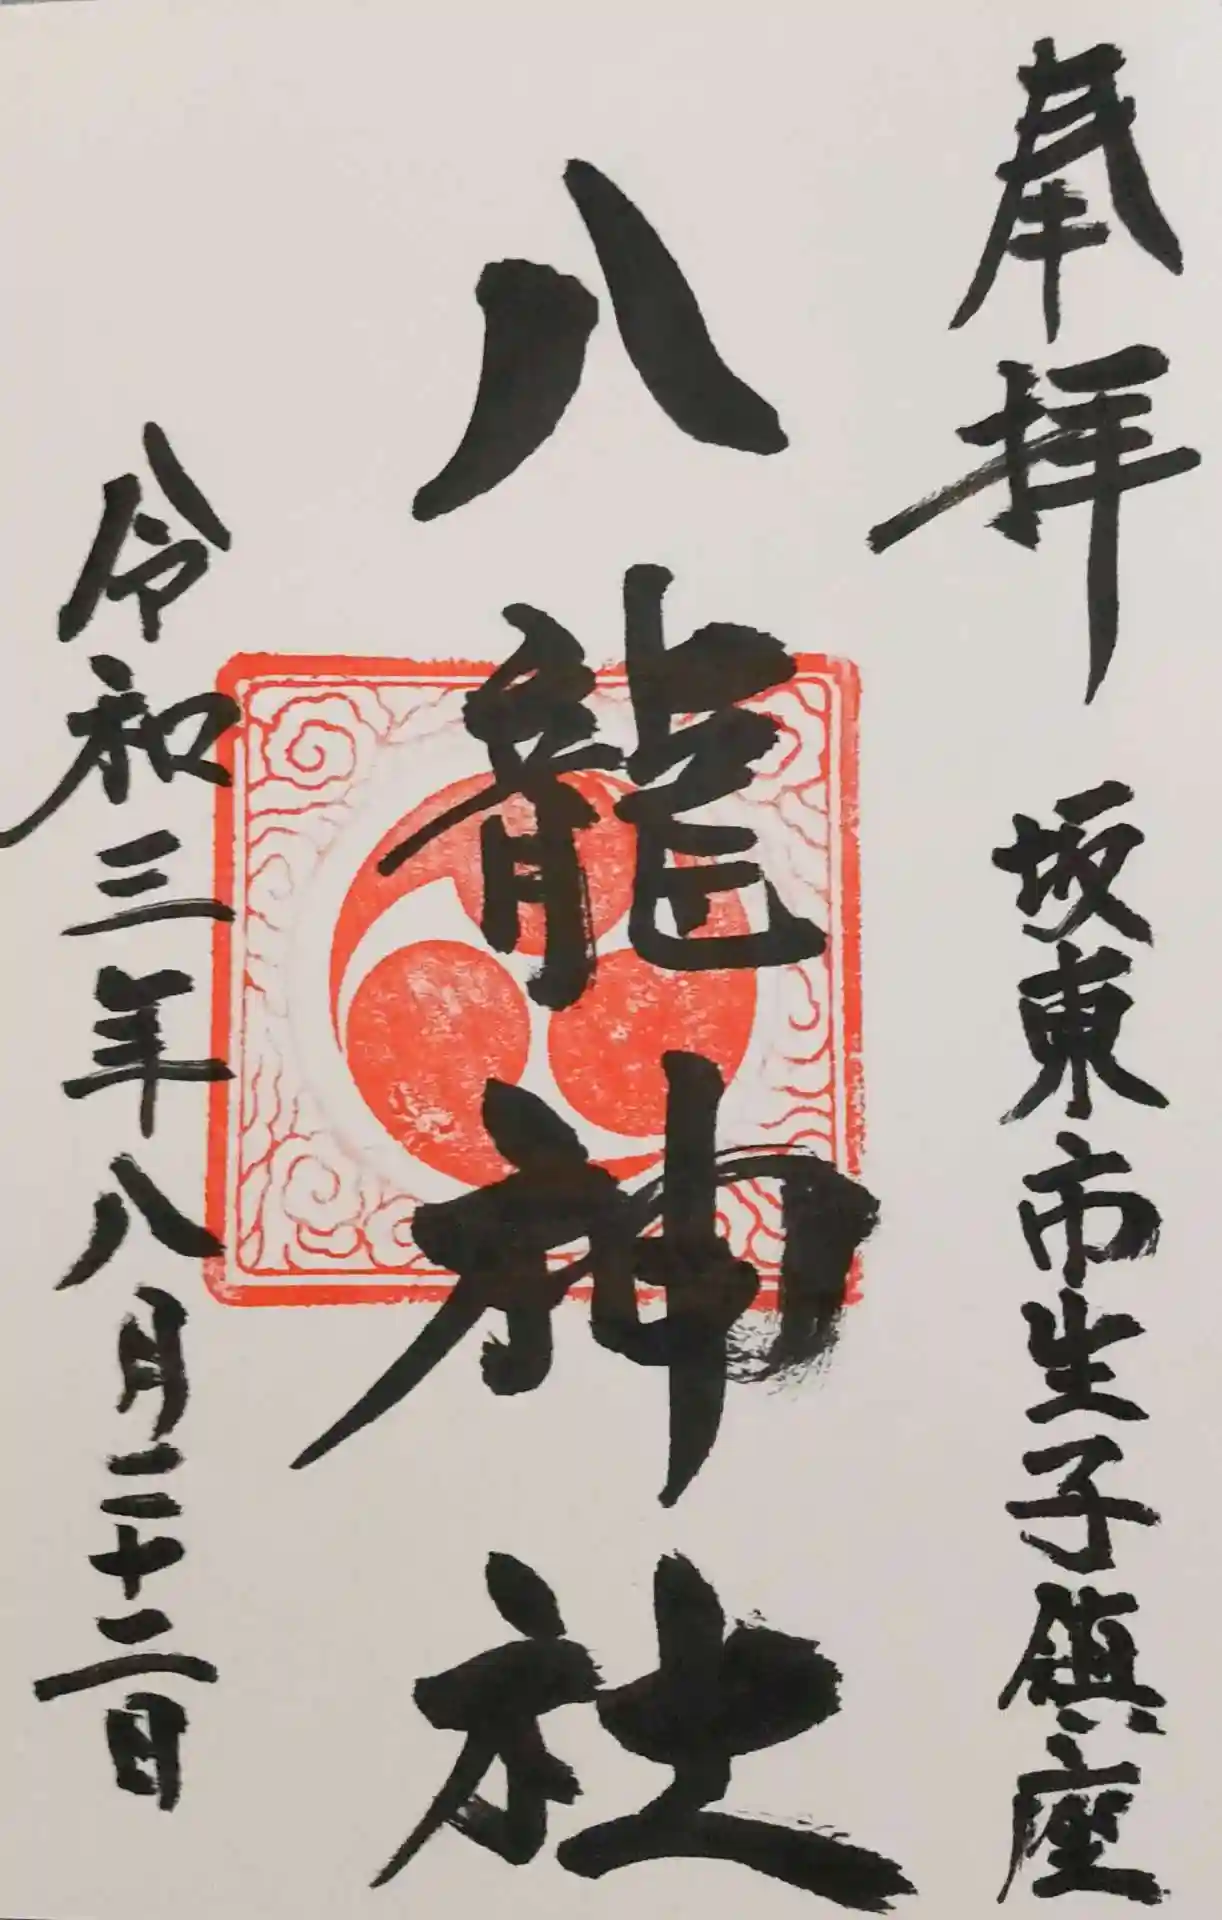 奉拝 坂東市生子鎮座
八龍神社
令和三年八月二十二日